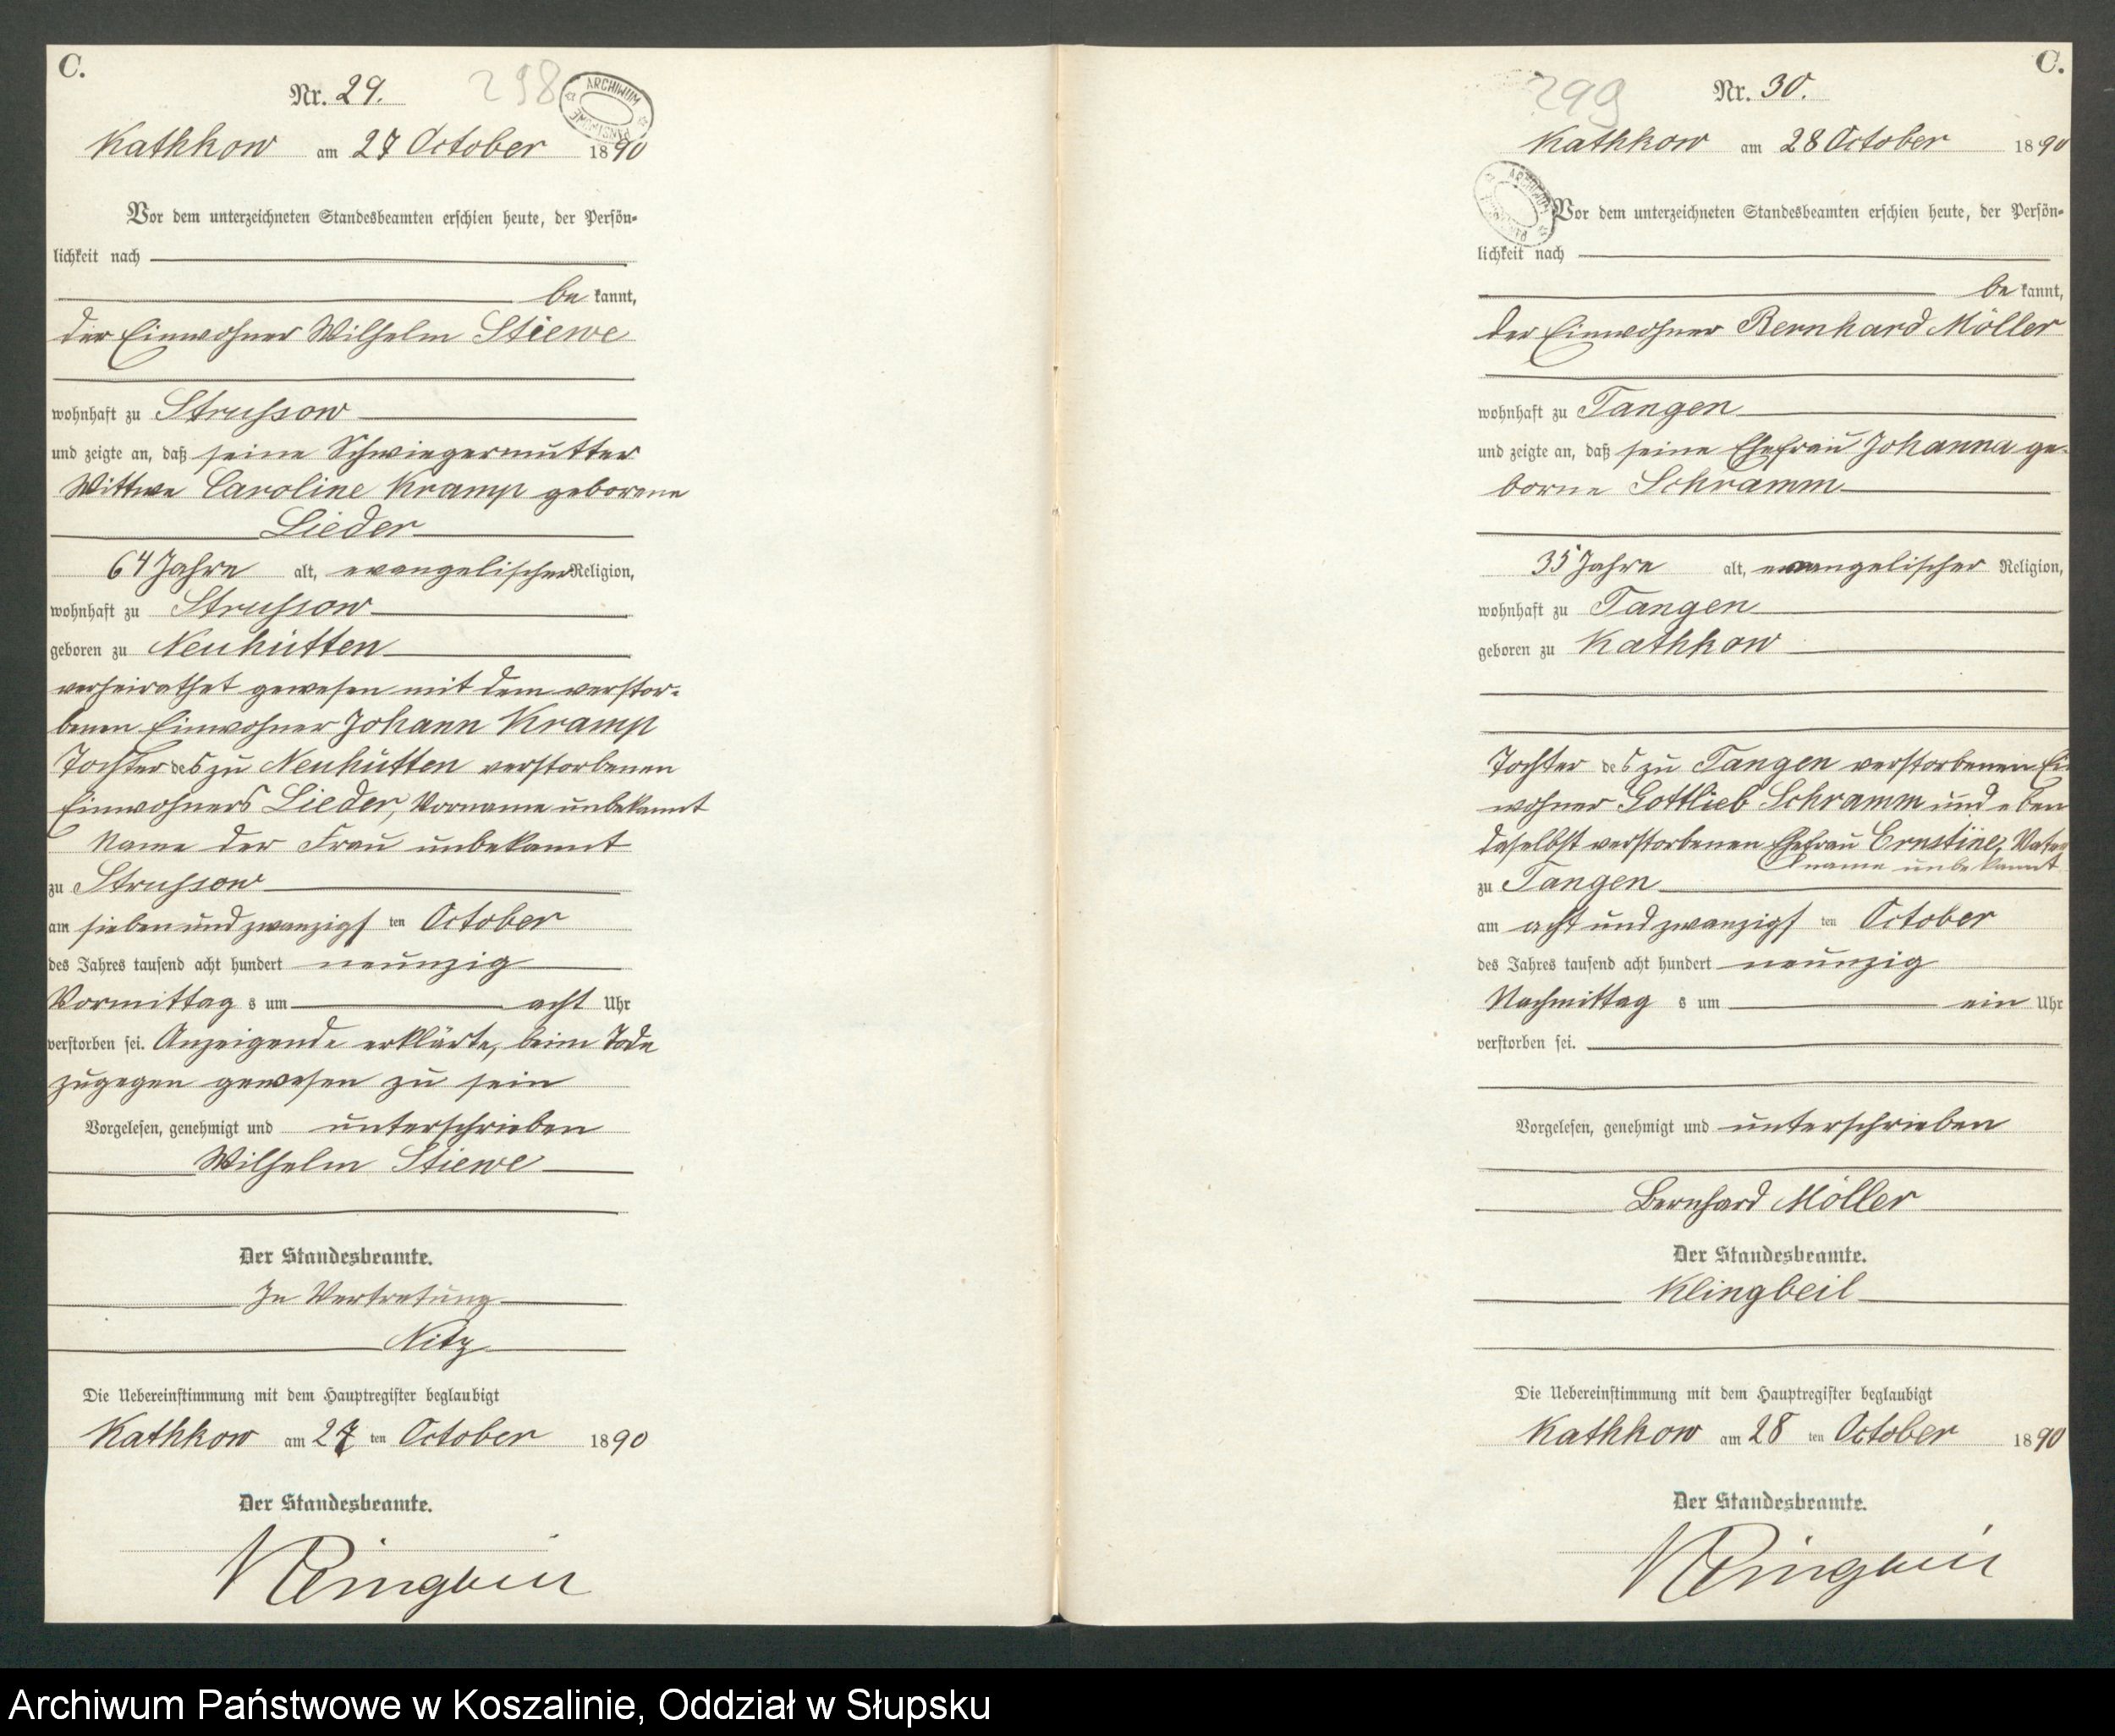 C.
Nr. 29.
298
ARCHIWUM PAŃSTWOWE
Kathkow am 27 October 1890
Vor dem unterzeichneten Standesbeamten erschien heute, der Persön-
lichkeit nach
be kannt,
der Einwohner Wilhelm Stiewe
wohnhaft zu Strussow
und zeigte an, daß seine Schwiegermutter
Wittwe Caroline Kramp geborene
Lieder
64 Jahre alt, evangelischer Religion,
wohnhaft zu Strussow
geboren zu Neuhütten
verheirathet gewesen mit dem verstor-
benen Einwohner Johann Kramp
Tochter des zu Neuhütten verstorbenen
Einwohners Lieder, Vorname unbekannt
Name der Frau unbekannt
zu Strussow
am sieben und zwanzigsten October
des Jahres tausend acht hundert neunzig
Vormittags um acht Uhr
verstorben sei. Anzeigende erklärte, beim Tode
zugegen gewesen zu sein
Vorgelesen, genehmigt und unterschrieben
Wilhelm Stiewe
Der Standesbeamte.
In Vertretung
Nitz
Die Uebereinstimmung mit dem Hauptregister beglaubigt
Kathkow am 27 ten October 1890
Der Standesbeamte.
Klingbeil
C.
Nr. 30.
299
Kathkow am 28 October 1890
ARCHIWUM
Vor dem unterzeichneten Standesbeamten erschien heute, der Persön-
lichkeit nach
be kannt,
der Einwohner Bernhard Möller
wohnhaft zu Tangen
und zeigte an, daß seine Ehefrau Johanna ge-
borne Schramm
35 Jahre alt, evangelischer Religion,
wohnhaft zu Tangen
geboren zu Kathkow
Tochter des zu Tangen verstorbenen Ein
wohner Gottlieb Schramm und eben
daselbst verstorbenen Ehefrau Ernstine, Vater
name unbekannt
zu Tangen
am acht und zwanzigsten October
des Jahres tausend acht hundert neunzig
Nachmittags um ein Uhr
verstorben sei.
Vorgelesen, genehmigt und unterschrieben
Bernhard Möller
Der Standesbeamte.
Klingbeil
Die Uebereinstimmung mit dem Hauptregister beglaubigt
Kathkow am 28 ten October 1890
Der Standesbeamte.
Klingbeil
Archiwum Państwowe w Koszalinie, Oddział w Słupsku